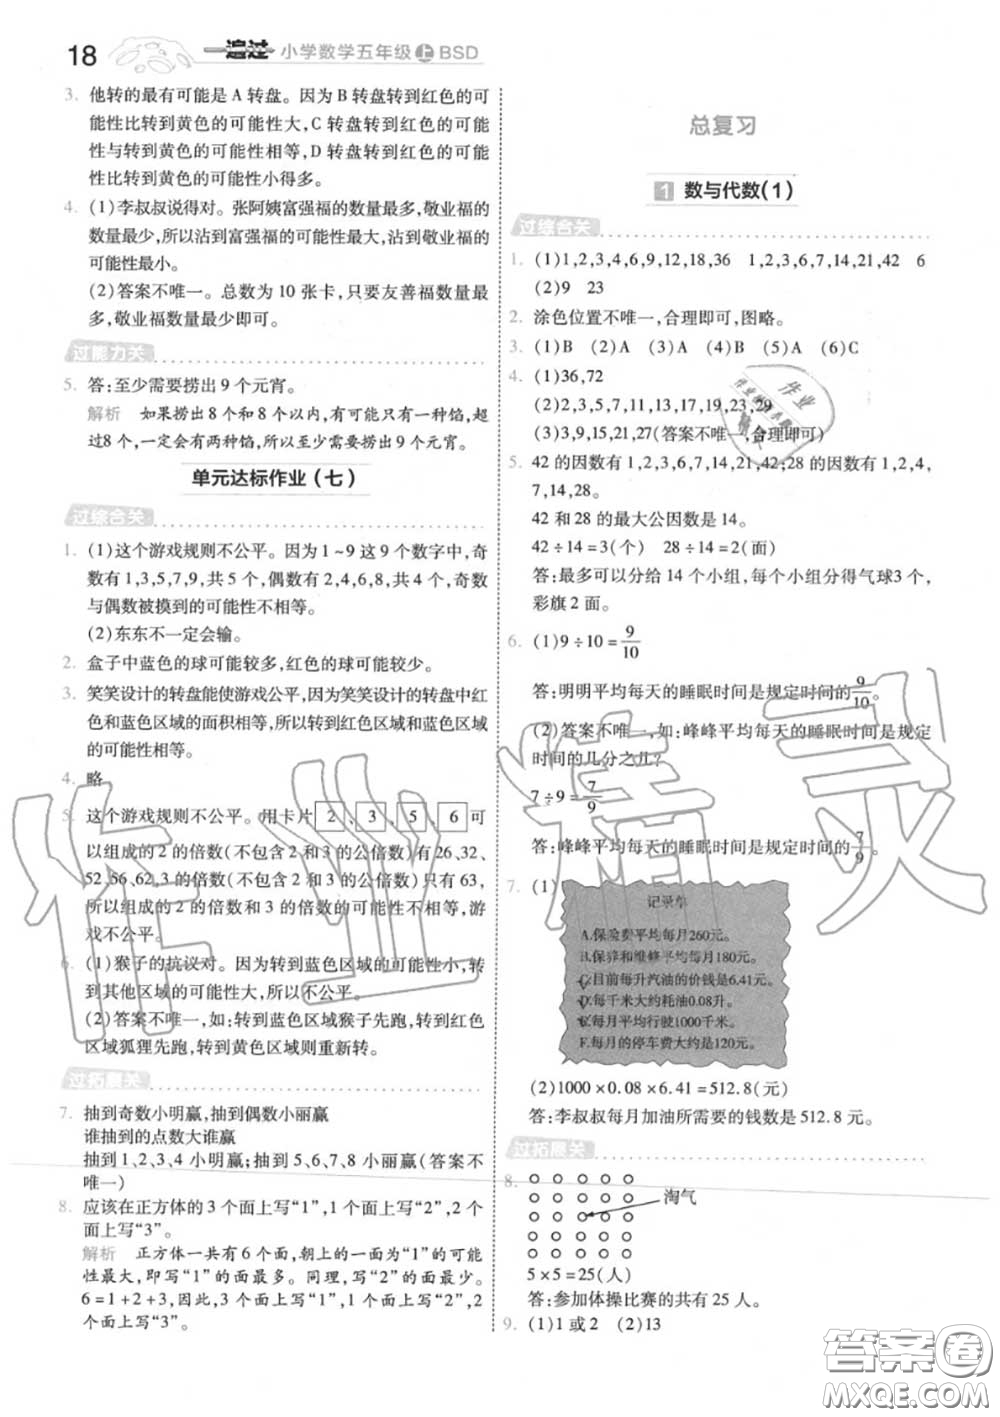 18
一遍过 小学数学五年级 上 BSD
3. 他转的最有可能是 A 转盘。因为 B 转盘转到红色的可
能性比转到黄色的可能性大,C 转盘转到红色的可能
性与转到黄色的可能性相等,D 转盘转到红色的可能
性比转到黄色的可能性小得多。
4. (1)李叔叔说得对。张阿姨富强福的数量最多,敬业福的
数量最少,所以沾到富强福的可能性最大,沾到敬业福的
可能性最小。
(2)答案不唯一。总数为 10 张卡,只要友善福数量最
多,敬业福数量最少即可。
过能力关
5. 答:至少需要捞出 9 个元宵。
解析 如果捞出 8 个和 8 个以内,有可能只有一种馅,超
过8 个,一定会有两种馅,所以至少需要捞出 9 个元宵。
单元达标作业(七)
过综合关
1. (1)这个游戏规则不公平。因为 1~9 这 9 个数字中,奇
数有 1,3,5,7,9,共 5 个,偶数有 2,4,6,8,共 4 个,奇数
与偶数被摸到的可能性不相等。
(2)东东不一定会输。
2. 盒子中蓝色的球可能较多,红色的球可能较少。
3. 笑笑设计的转盘能使游戏公平,因为笑笑设计的转盘中红
色和蓝色区域的面积相等,所以转到红色区域和蓝色区域
的可能性相等。
4. 略
5. 这个游戏规则不公平。用卡片 2 、 3 、 5 、 6 可
以组成的 2 的倍数(不包含 2 和 3 的公倍数)有 26,32,
52,56,62,3 的倍数(不包含 2 和 3 的公倍数)只有 63,
所以组成的 2 的倍数和 3 的倍数的个数不相等,游
戏不公平。
6. (1)猴子的抗议对。因为转到蓝色区域的可能性小,转
到其他区域的可能性大,所以不公平。
(2)答案不唯一,如:转到蓝色区域猴子先跑,转到红色
区域狐狸先跑,转到黄色区域则重新转。
过拓展关
7. 抽到奇数小明赢,抽到偶数小丽赢
谁抽到的点数大谁赢
抽到 1,2,3,4 小明赢;抽到 5,6,7,8 小丽赢(答案不
唯一)
8. 应该在正方体的 3 个面上写“1”,1 个面上写“2”,2 个
面上写“3”。
解析 正方体一共有 6 个面,朝上的一面为“1”的可能
性最大,即写“1”的面最多。同理,写“2”的面最少。
6=1+2+3,因此,3 个面上写“1”,1 个面上写“2”,2
个面上写“3”。
总复习
1 数与代数(1)
过综合关
1. (1)1,2,3,4,6,9,12,18,36 1,2,3,6,7,14,21,42 6
(2)9 23
2. 涂色位置不唯一,合理即可,图略。
3. (1)B (2)A (3)C (4)B (5)A (6)C
4. (1)36,72
(2)2,3,5,7,11,13,17,19,23,29
(3)3,9,15,21,27(答案不唯一,合理即可)
5. 42 的因数有 1,2,3,6,7,14,21,42;28 的因数有 1,2,4,
7,14,28。
42 和 28 的最大公因数是 14。
42÷14=3(个) 28÷14=2(面)
答:最多可以分给 14 个小组,每个小组分得气球3 个,
彩旗 2 面。
6. (1)9÷10=9/10
答:明明平均每天的睡眠时间是规定时间的9/10。
(2)答案不唯一,如:峰峰平均每天的睡眠时间是规定
时间的几分之几?
7÷9=7/9
答:峰峰平均每天的睡眠时间是规定时间的7/9。
7. (1)
记录单
A.保险费平均每月260元。
B.保养和维修平均每月180元。
C.目前每升汽油的价钱是6.41元。
D.每千米大约耗油0.08升。
E.每月平均行驶1000千米。
F.每月的停车费大约是120元。
(2)1000×0.08×6.41=512.8(元)
答:李叔叔每月加油所需要的钱数是 512.8 元。
过拓展关
8.
淘气
5×5=25(人)
答:参加体操比赛的共有 25 人。
9. (1)1 或 2 (2)13
作业精灵
答案圈
MXQE.COM